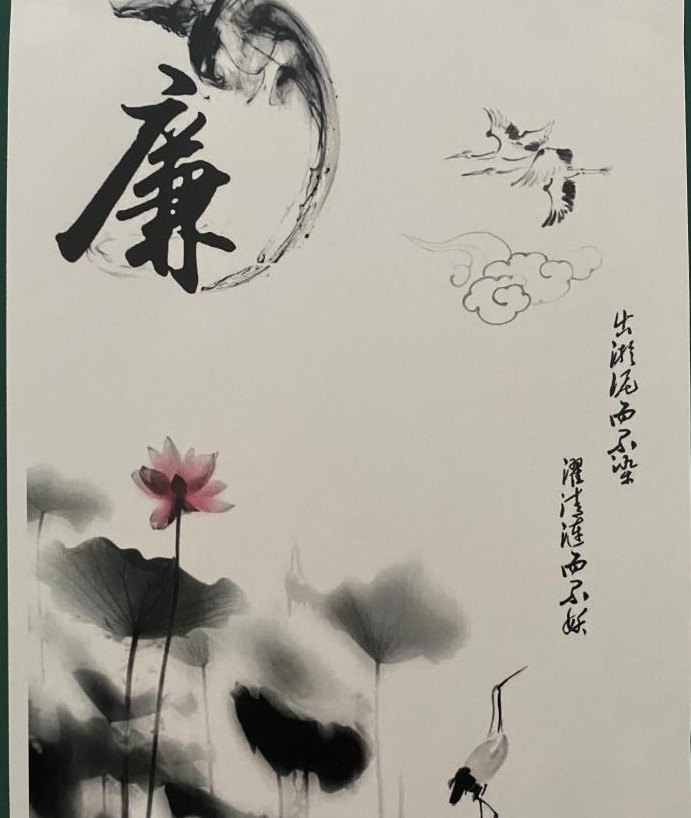 廉
出淤泥而不染
濯清涟而不妖